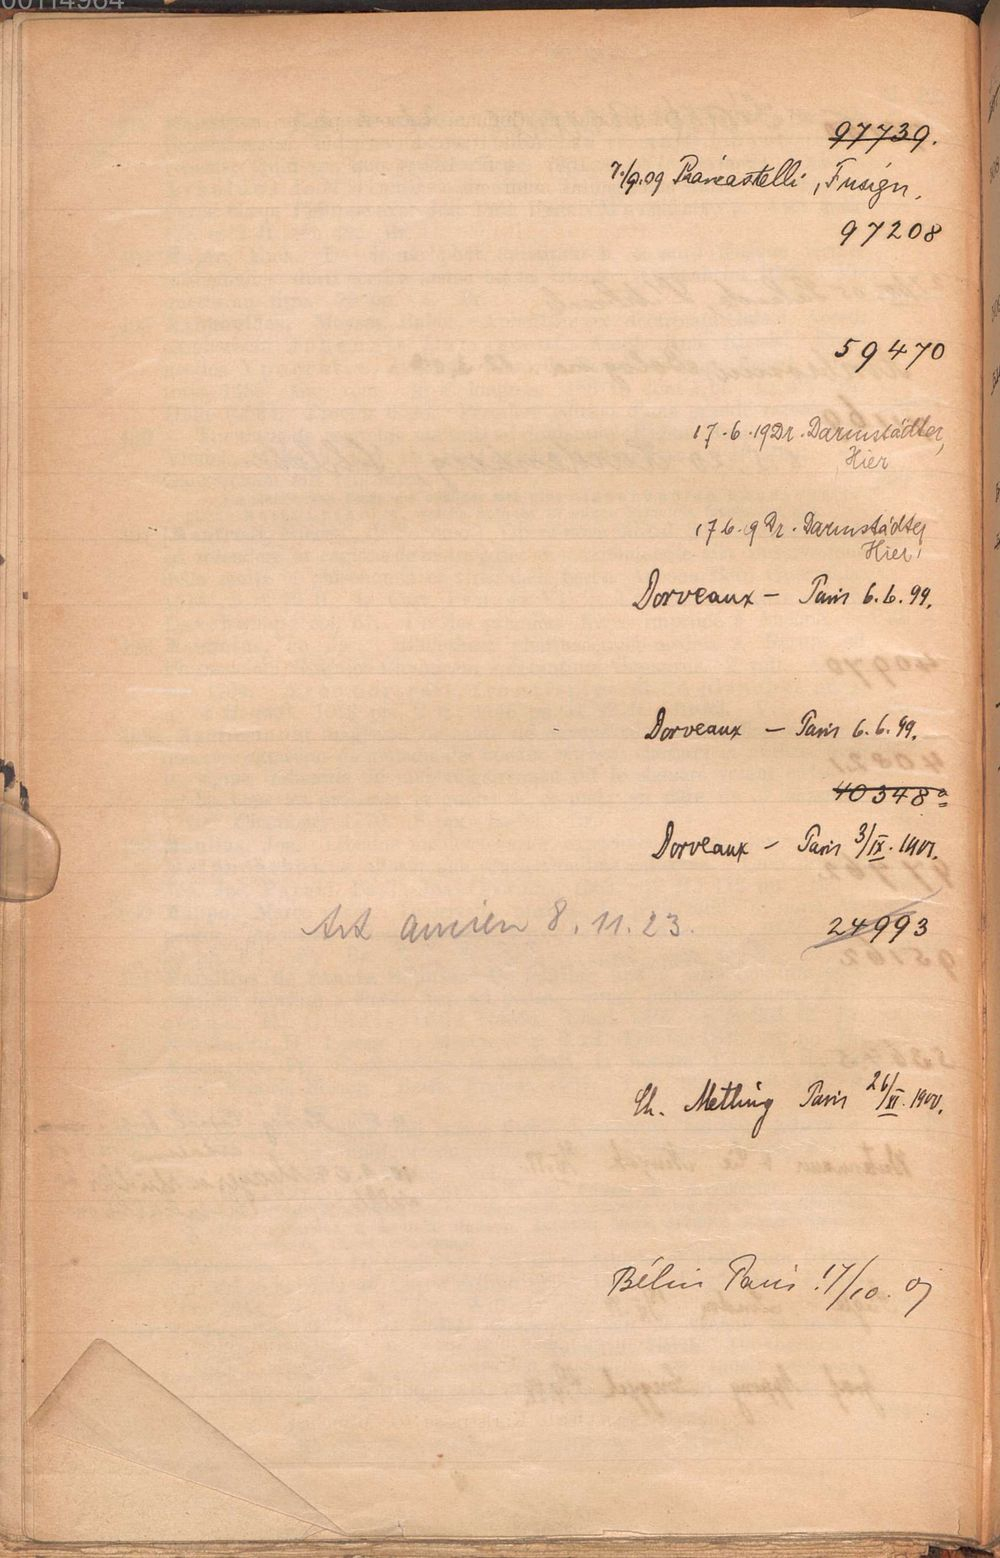 00114984
97739.
7./9.09 Piancastelli, Fusign.
97208
59470
17.6.19 Dr. Darmstädter,
Hier
17.6.9 Dr. Darmstädter
Hier
Dorveaux – Paris 6.6.99.
Dorveaux – Paris 6.6.99.
40348a
Dorveaux – Paris 3/IX. 1901.
Art ancien 8.11.23. 24993
Ch. Metting Paris 26/XI. 1900.
Bélin Paris 17/10.